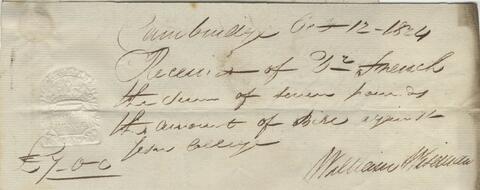 Cambridge Oct 12 - 1824
Received of Dr French
the sum of seven pounds
the amount of Bill against
Jesus College
£7-0-0
William